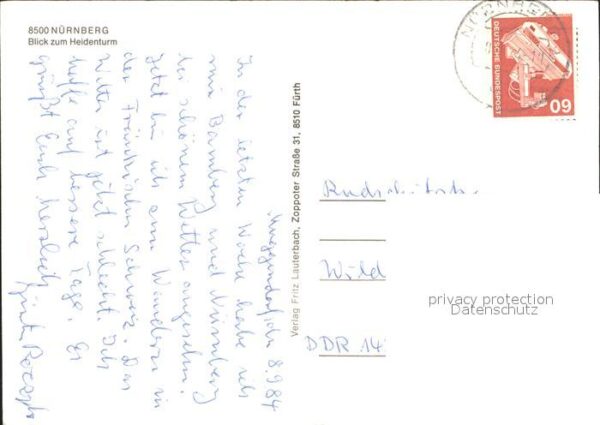 8500 NÜRNBERG
Blick zum Heidenturm
8.9.84
In der letzten Woche habe ich
mir Bamberg und Nürnberg
bei schönem Wetter angesehen.
Jetzt bin ich am Wandern in
der Fränkischen Schweiz. Das
Wetter ist jetzt schlecht. Ich
hoffe auf bessere Tage. Es
grüßt Euch herzlich
Verlag Fritz Lauterbach, Zoppoter Straße 31, 8510 Fürth
NÜRNBERG
DEUTSCHE BUNDESPOST
60
Wild
DDR 14
privacy protection
Datenschutz